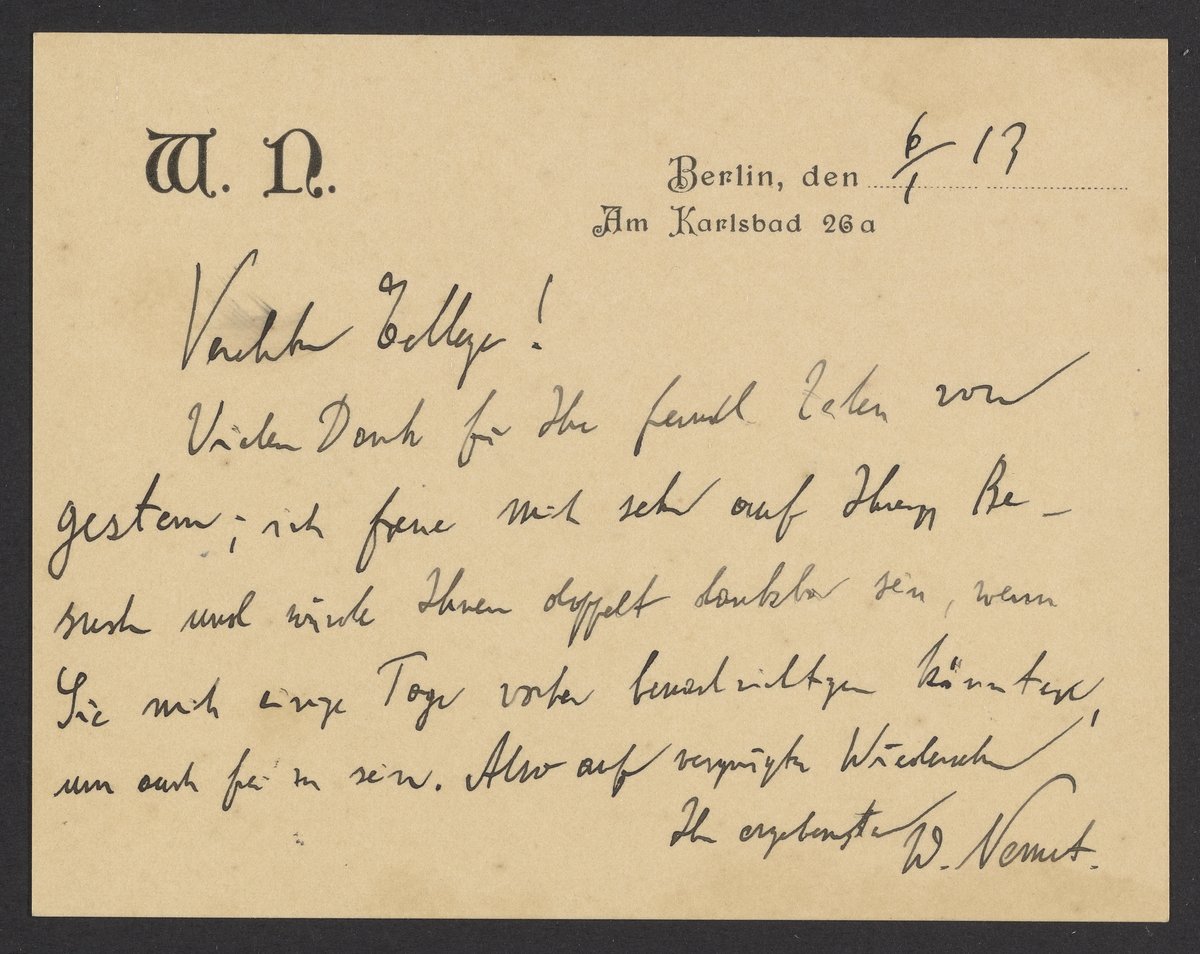 W. N.
Berlin, den 6/1 13
Am Karlsbad 26a
Verehrter College!
Vielen Dank für Ihre freundl Zeilen von
gestern; ich freue mich sehr auf Ihren Be-
such und würde Ihnen doppelt dankbar sein, wenn
Sie mich einige Tage vorher benachrichtigen könnten,
um auch frei zu sein. Also auf vergnügtes Wiedersehen!
Ihr ergebenster W. Nernst.